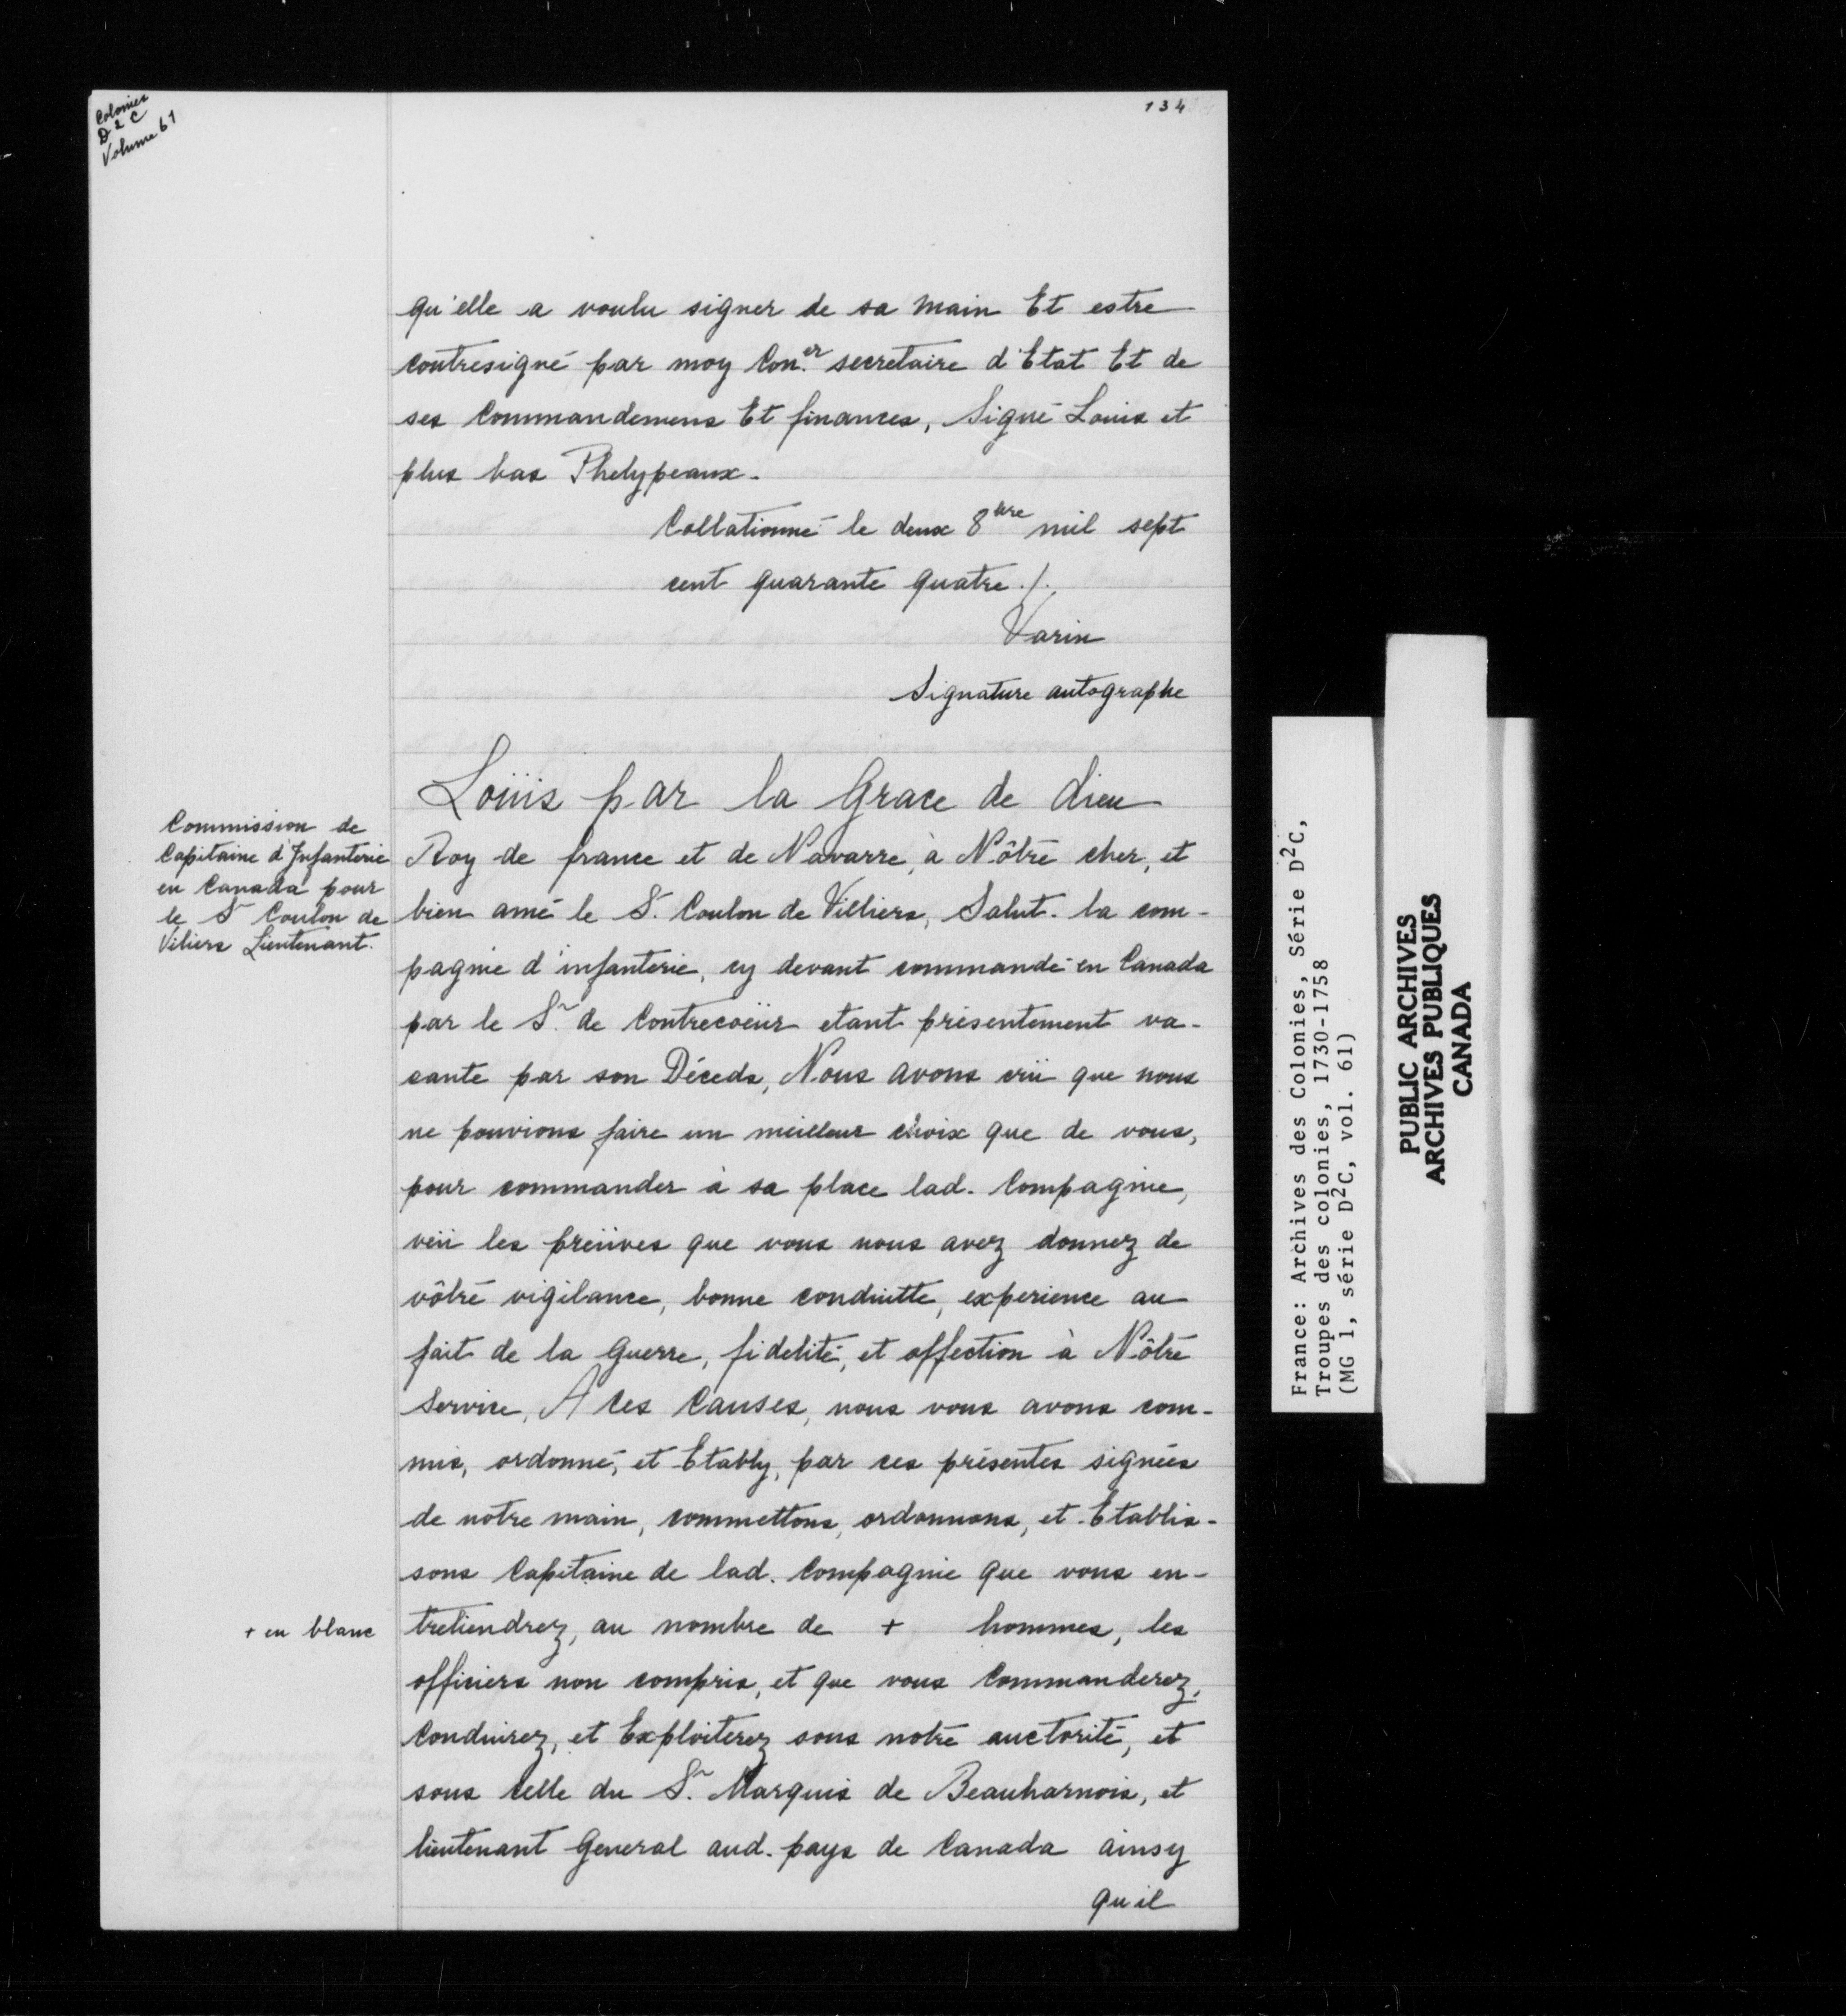 Colonies
D 2 C
Volume 61
134
qu'elle a voulu signer de sa main Et estre
contresigné par moy Con.er secretaire d'Etat Et de
ses Commandemens Et finances, Signé Louis et
plus bas Phelypeaux.
Collationné le deux 8bre mil sept
cent quarante quatre ./.
Varin
Signature autographe
Commission de
Capitaine d'Infanterie
en Canada pour
le Sr Coulon de
Viliers Lieutenant.
Loüis par la Grace de dieu
Roy de france et de Navarre, à Nôtre cher, et
bien amé le S. Coulon de Villiers, Salut. la com-
pagnie d'infanterie, cy devant commandé en Canada
par le Sr. de Contrecoeür etant présentement va-
cante par son Déceds, Nous avons crü que nous
ne pouvions faire un meilleur choix que de vous,
pour commander à sa place lad. Compagnie,
veü les preüves que vous nous avez donnez de
vôtre vigilance, bonne conduitte, experience au
fait de la guerre, fidelité, et affection à Nôtre
Service, A Ces Causes, nous vous avons com-
mis, ordonné, et Etably, par ces présentes signées
de notre main, commettons, ordonnons, et Etablis-
sons Capitaine de lad. Compagnie que vous en-
+ en blanc
tretiendrez, au nombre de + hommes, les
officiers non compris, et que vous Commanderez,
Conduirez, et Exploiterez sous notre auctorité, et
sous Celle du Sr. Marquis de Beauharnois, et
lieutenant General aud. pays de Canada ainsy
qu il
France: Archives des Colonies, Série D2C,
Troupes des colonies, 1730-1758
(MG 1, série D2C, vol. 61)
PUBLIC ARCHIVES
ARCHIVES PUBLIQUES
CANADA